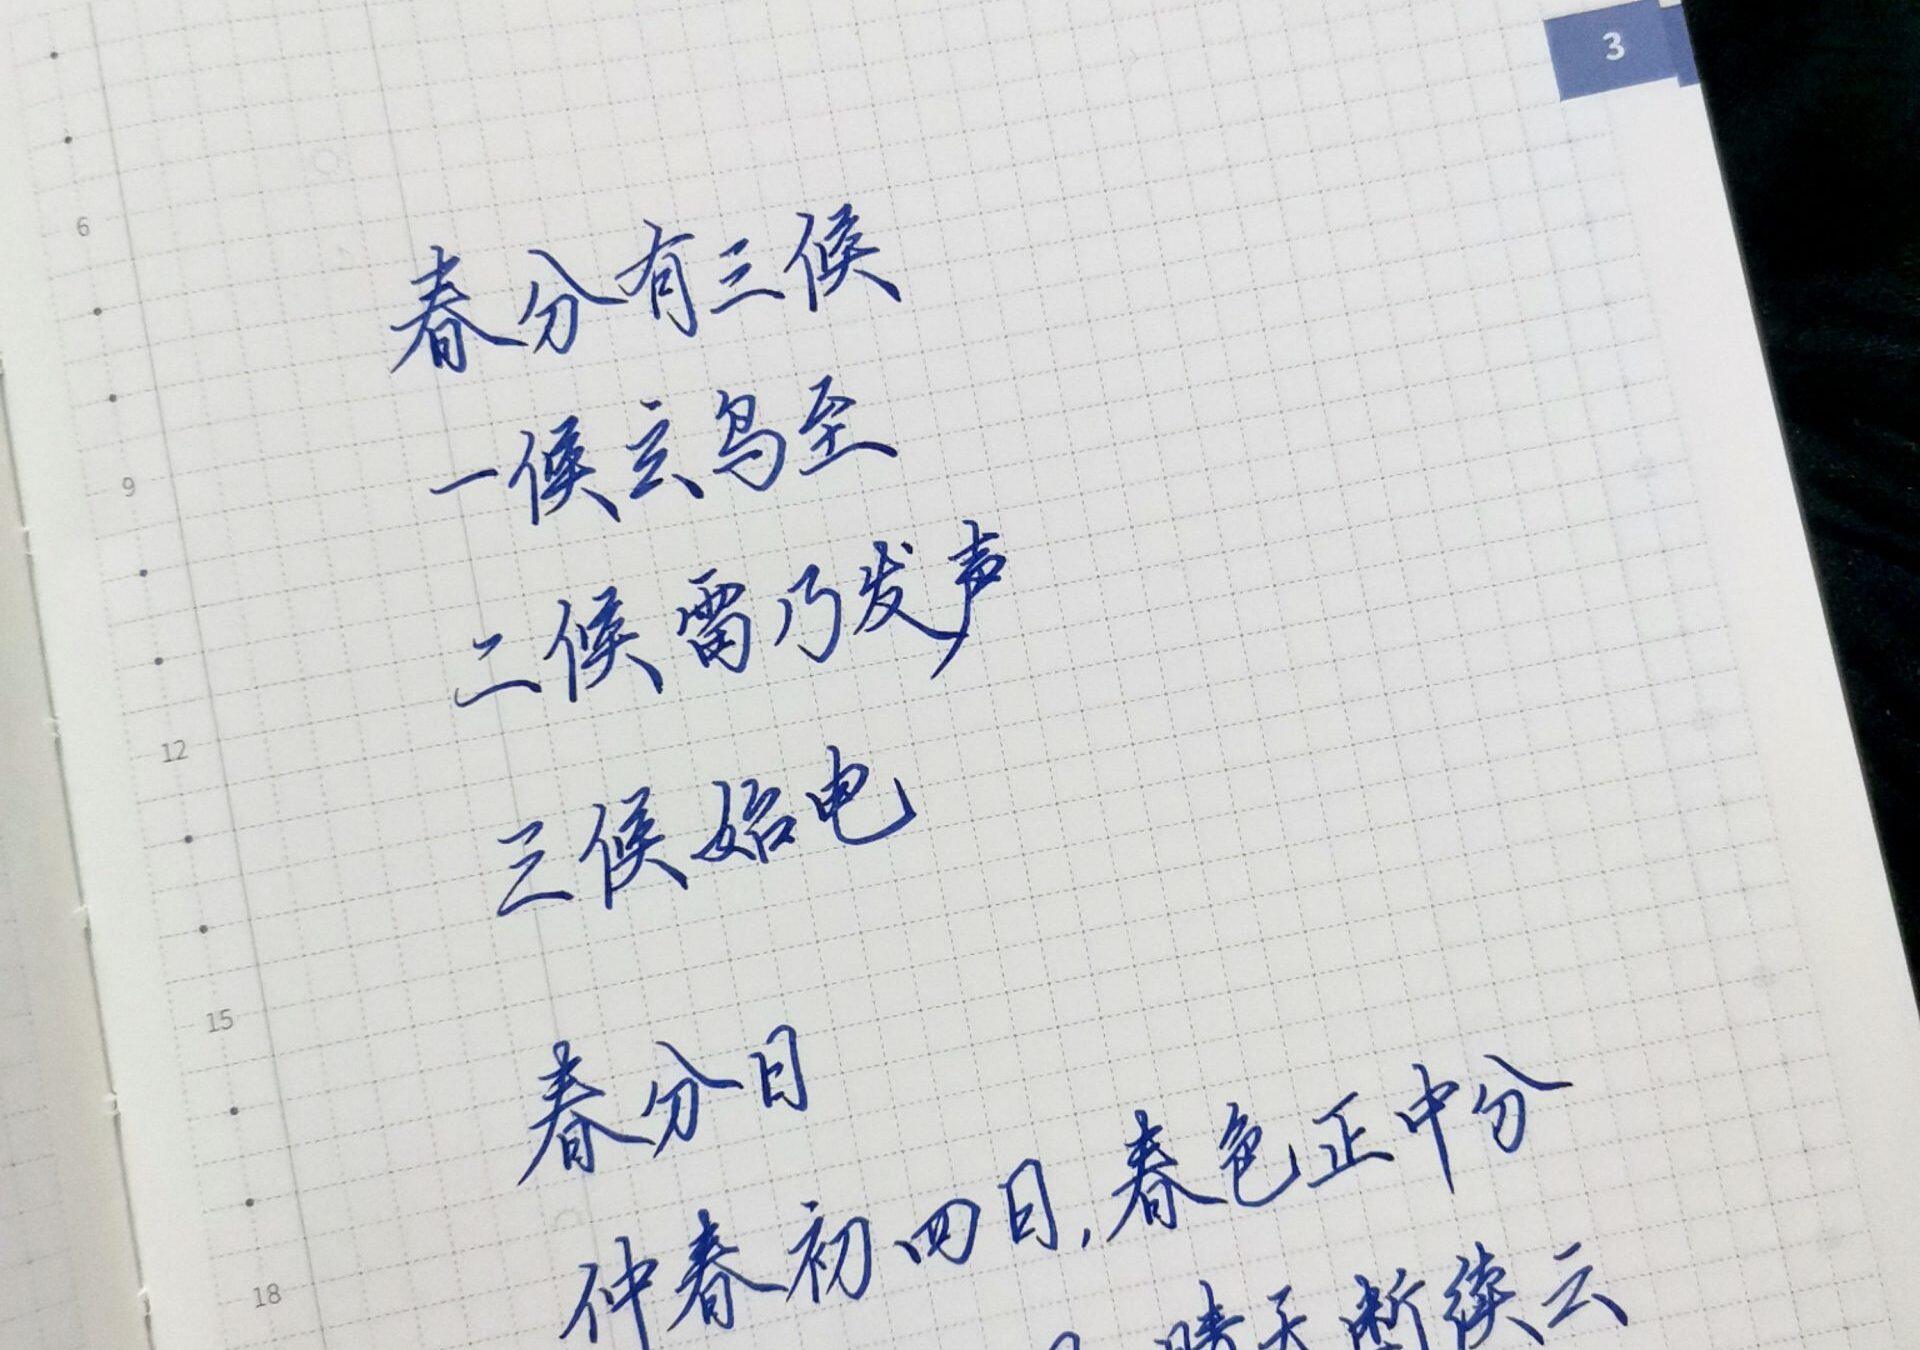 3
6
春分有三候
9
一候玄鸟至
二候雷乃发声
12
三候始电
15
春分日
仲春初四日,春色正中分
18
晴天断续云